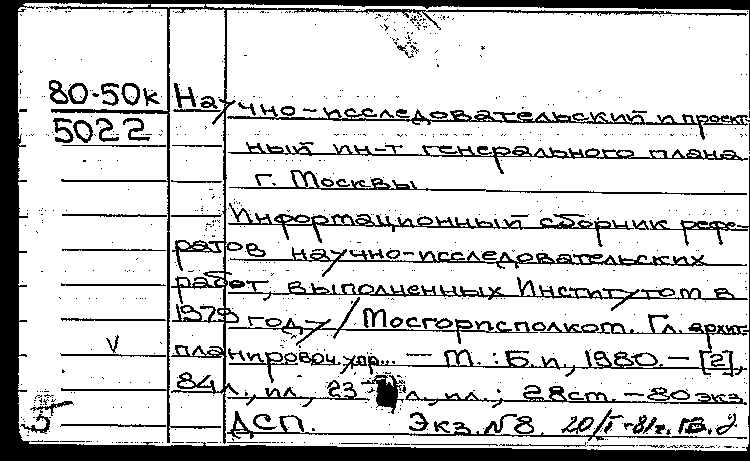 80-50к
5022
Научно-исследовательский и проект-
ный ин-т генерального плана
г. Москвы
Информационный сборник рефе-
ратов научно-исследовательских
работ, выполненных Институтом в
1979 году / Мосгорисполком. Гл. архит.-
планировоч. упр... — М.: Б.и., 1980. — [2],
84 л., ил., 23 л., ил.; 28 см. — 80 экз.
ДСП. Экз. № 8. 20/I-81г.